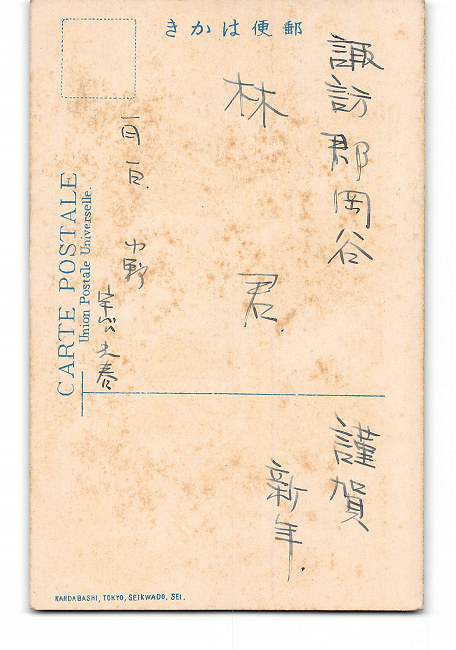 郵便はかき
諏訪郡岡谷
林 君.
一月一日.
小野
謹賀
新年.
CARTE POSTALE
Union Postale Universelle.
KANDABASHI, TOKYO, SEIKWADO, SEI.